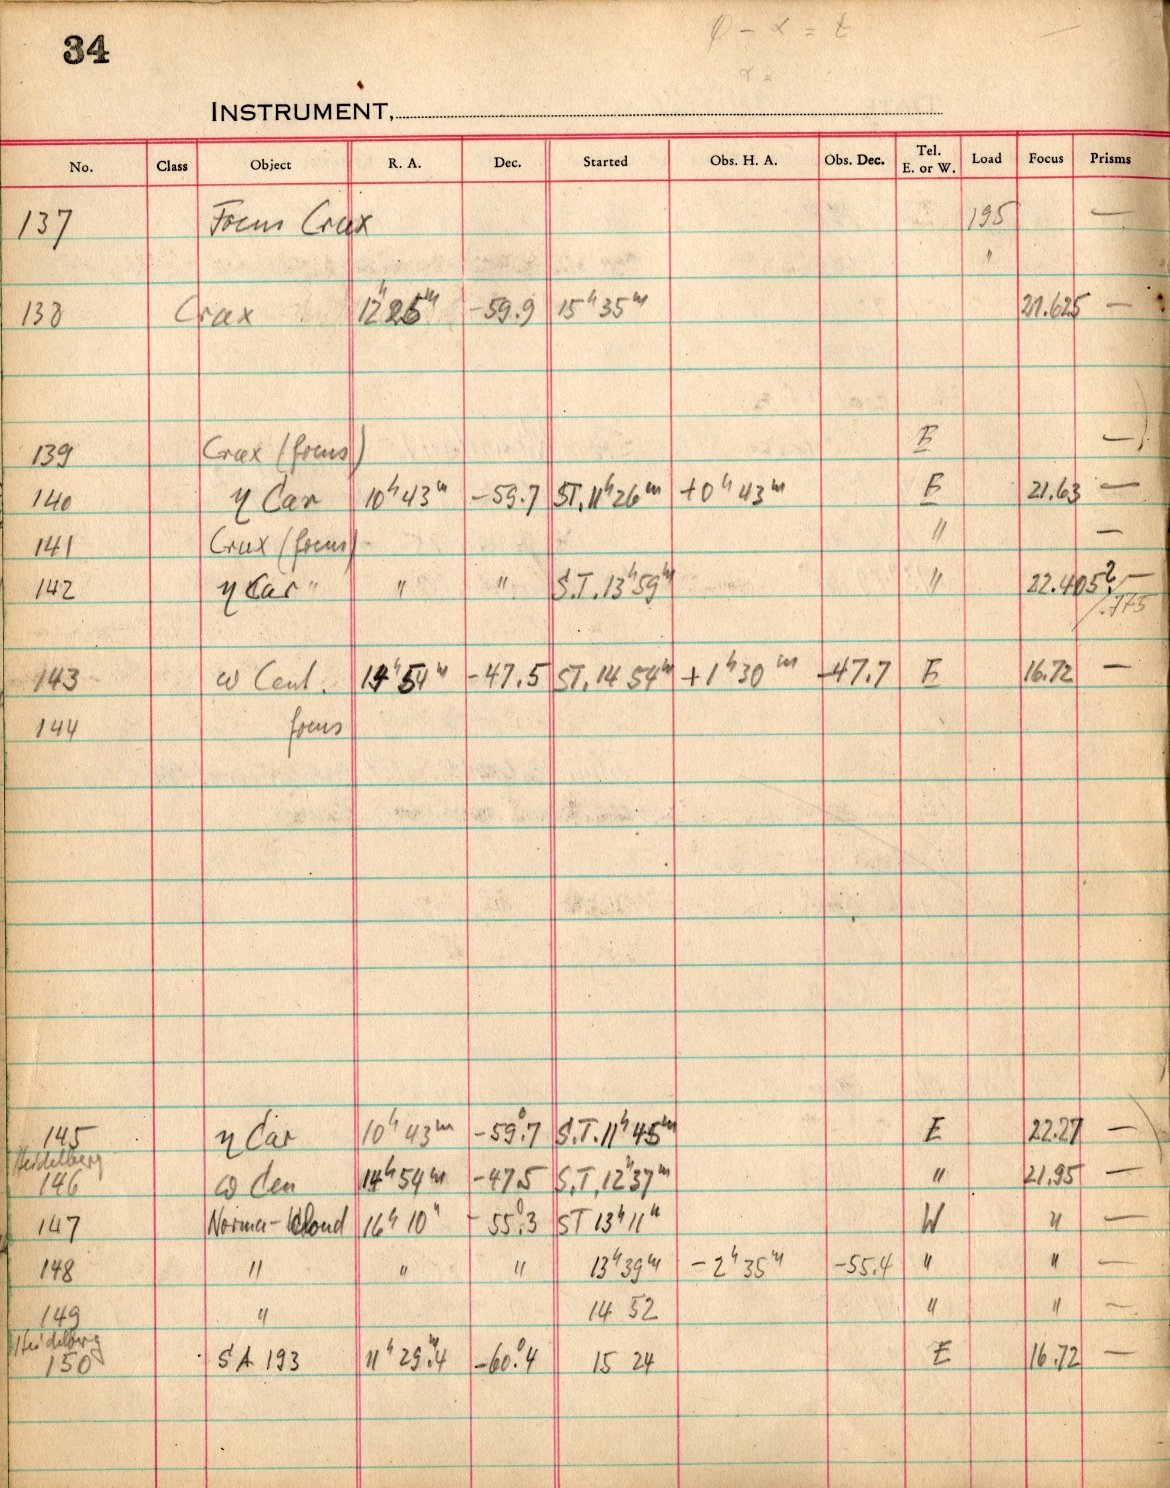 34
φ - α = t
α =
INSTRUMENT,
No. Class Object R. A. Dec. Started Obs. H. A. Obs. Dec. Tel. E. or W. Load Focus Prisms
137 Focus Crux 195 —
"
138 Crux 12h 26m -59.9 15h 35m 21.625 —
139 Crux (focus) E —
140 η Car 10h 43m -59.7 ST. 11h 26m +0h 43m E 21.63 —
141 Crux (focus) " —
142 η Car " " " S.T. 13h 59m " 22.405? —
.775
143 ω Cent. 14h 54m -47.5 ST. 14 54m +1h 30m -47.7 E 16.72 —
144 focus
145 η Car 10h 43m -59°.7 S.T. 11h 45m E 22.27 —
Heidelberg
146 ω Cen 14h 54m -47.5 S.T. 12h 37m " 21.95 —
147 Norma-Cloud 16h 10m -55°.3 ST 13h 11m W " —
148 " " " 13h 39m -2h 35m -55.4 " " —
149 " 14 52 " " —
Heidelberg
150 SA 193 11h 29m.4 -60°.4 15 24 E 16.72 —